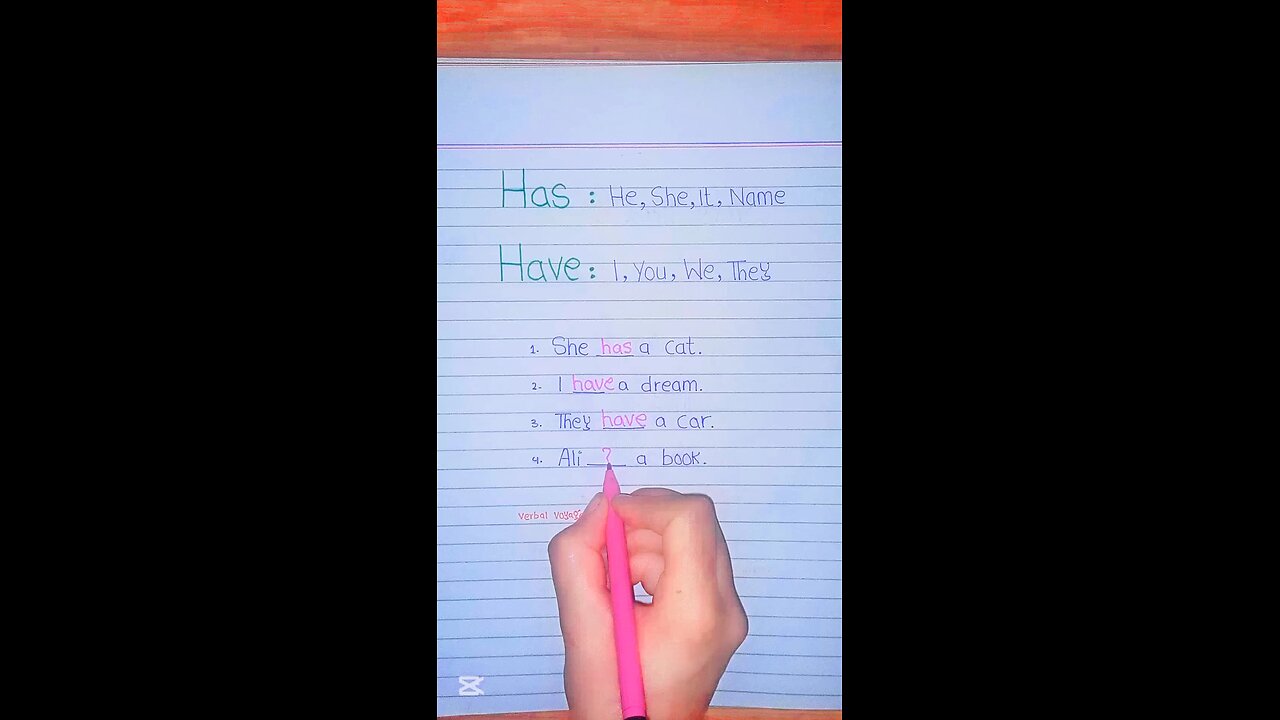 Has : He, She, It, Name
Have : I, You, We, They
1. She has a cat.
2. I have a dream.
3. They have a car.
4. Ali ? a book.
Verbal